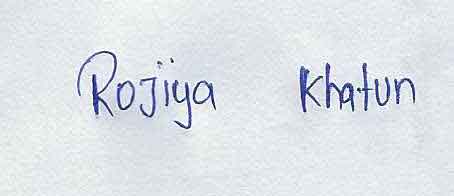 Rojiya Khatun